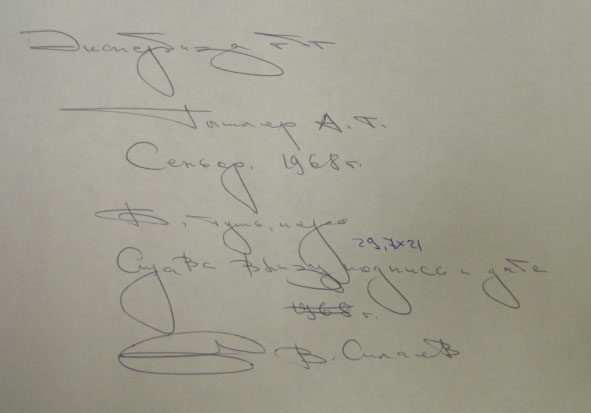 Экспертиза ГТГ
Тышлер А.Г.
Сеньор. 1968 г.
Б., тушь, перо
29,7x21
Справа внизу подпись и дата
1968 г.
В. Силаев